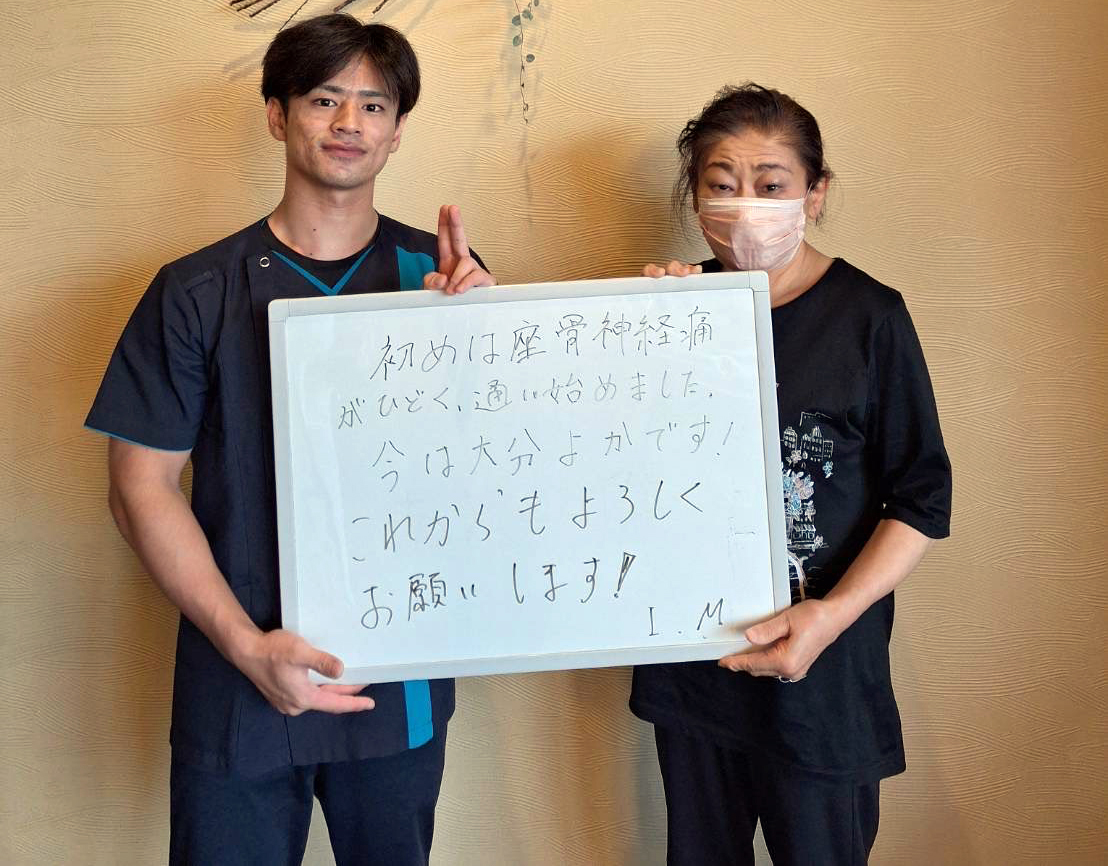 初めは座骨神経痛
がひどく、通い始めました。
今は大分よかです!
これからもよろしく
お願いします!
I.M